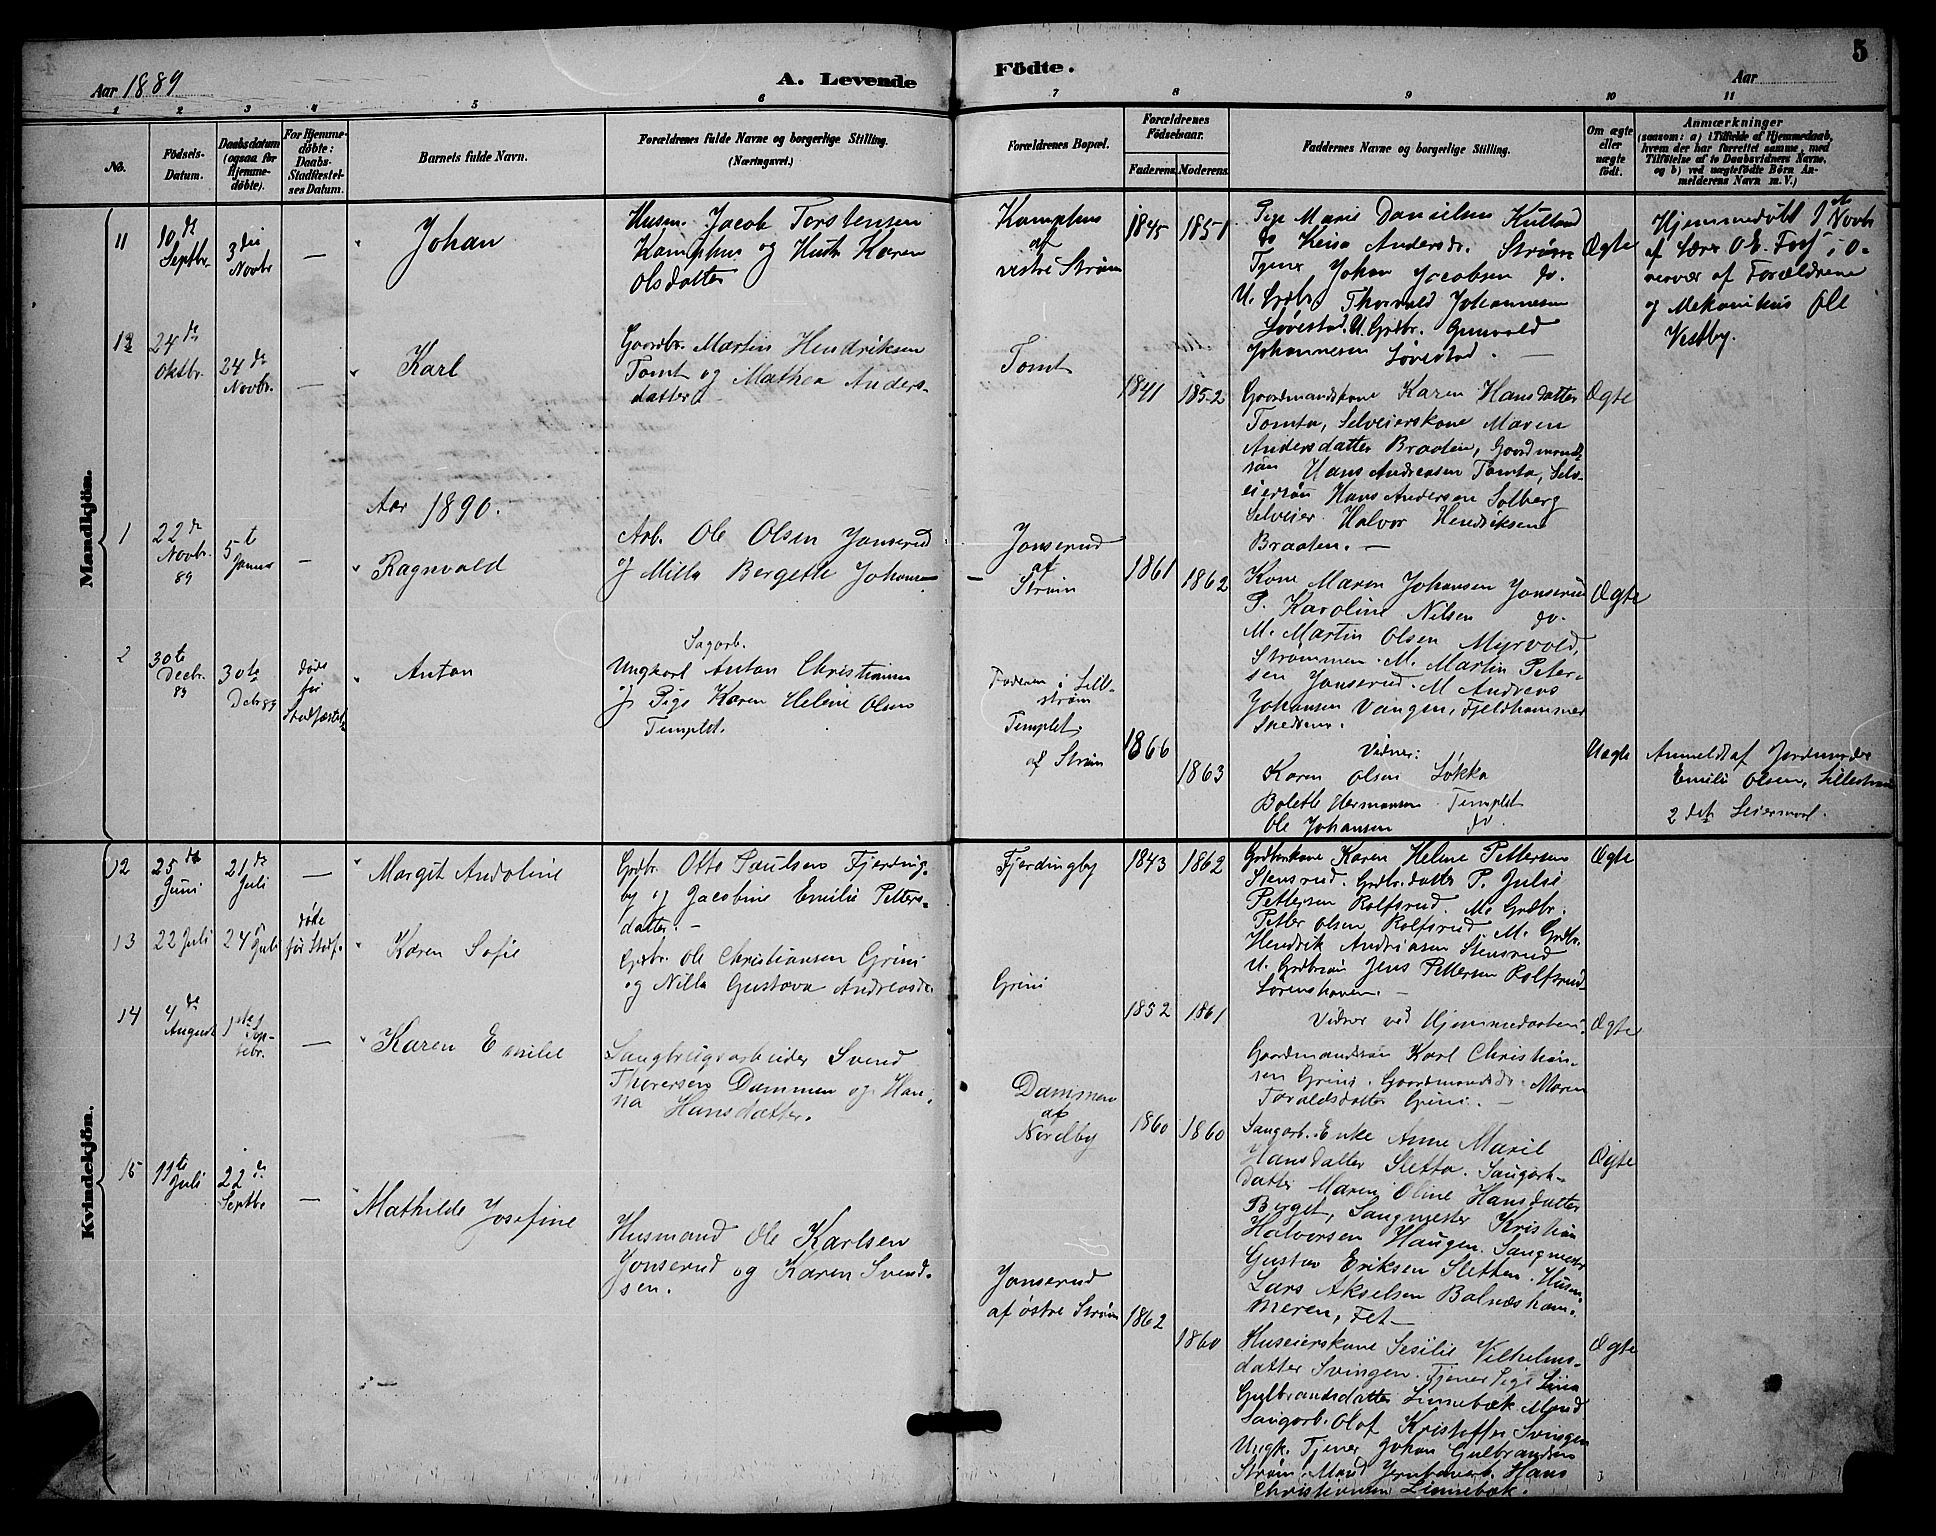 Aar 1889
A. Levende
Födte.
Aar
5
1 2 3 4 5 6 7 8 9 10 11
No.
Födsels-
Datum.
Daabsdatum
(ogsaa for
Hjemme-
döbte).
For Hjemme-
döbte:
Daabs-
Stadfæstel-
ses Datum.
Barnets fulde Navn.
Forældrenes fulde Navne og borgerlige Stilling.
(Næringsvei.)
Forældrenes Bopæl.
Forældrenes
Födselsaar.
Faderens.
Moderens.
Faddernes Navne og borgerlige Stilling.
Om ægte
eller
uægte
födt.
Anmærkninger
(saasom: a) i Tilfælde af Hjemmedaab,
hvem der har forrettet samme, med
Tilföielse af to Daabsvidners Navne,
og b) ved uægtefödte Börn An-
melderens Navn m. V.)
Mandkjön.
11
10de
Septbr.
3die
Novbr
—
Johan
Husm. Jacob Torstensen
Kamphus og Hustr. Karen
Olsdatter
Kamphus
af
vestre Strøm
1845
1851
Pige Marie Danielsen
do Andersdr. Strøm
Tjener Johan Jacobsen do.
U. Grdbr. Thorvald Johannesen
Løvestad. U. Grdbr. Gunvald
Johannesen Løvestad. —
Ægte
Hjemmedøbt Novbr
af Lærer O. E.
nærvær af Forældrene
og Mekanikus Ole
Vestby.
12
24de
Oktbr.
24de
Novbr.
—
Karl
Gaardbr. Martin Hendriksen
Tomt og Mathea Anders-
datter
Tomt
1841
1852
Gaardmandskone Karen Hansdatter
Tomta, Selveierskone Maren
Andersdatter Braaten, Gaardmands-
søn Hans Andreasen Tomta, Selv-
eiersøn Hans Andersen Solberg
Selveier Halvor Hendriksen
Braaten. —
Ægte
Aar 1890.
1
22de
Novbr.
89
5t
Januar
—
Ragnvald
Arb. Ole Olsen Jonserud
og Milla Bergette Johans-
Jonserud
af
Strøm
1861
1862
Kone Maren Johansen Jonserud
P. Karoline Nilsen do.
M. Martin Olsen Myrvold,
Strømmen. M. Martin Peter-
sen Jonserud. M Andreas
Johansen Vangen, Fjeldhammer
Ægte
2
30te
Decbr.
89
30te
Dcbr 89
døde
før
Stadfæstels
Anton
Sagarb.
Ungkarl Anton Christiansen
og Pige Karen Helene Olsen
Templet.
Faderen i Lille-
strøm
Templet
af Strøm
1866
1863
Vidner:
Karen Olsen Løkka
Bolette Hermansen Templet
Ole Johansen do.
Uægte
Anmeldt af Jordmoder
Emilie Olsen, Lillestrøm
2 det Leiermaal.
Kvindekjön.
12
25de
Juni
21de
Juli
—
Margit Andoline
Grdbr. Otto Paulsen Fjerding-
by og Jacobine Emilie Petters-
datter. —
Fjerdingby
1843
1862
Grdbrskone Karen Helene Pettersen
Stensrud. Grdbr.datter P. Julie
Pettersen Rolfsrud. M. Grdbr.
Petter Olsen Rolfsrud M. Grdbr.
Hendrik Andreasen Stensrud
U. Grdbrsøn Jens Pettersen Rolfsrud-
Ægte
13
22 Juli
24 Juli
døde
før Stadf.
Karen Sofie
Grdbr. Ole Christiansen Grini
og Nilla Gustava Andreasdr.
Grini
1852
1861
Vidner ved Hjemmedaaben:
Gaardmandssøn Karl Christian-
sen Grini. Gaardmandsd. Maren
Grini. —
Ægte
14
4de
August
1ste
Sep-
tebr.
—
Karen Emilie
Saugbrugsarbeider Svend
Thoresen Dammen og Han-
na Hansdatter.
Dammen
af
Nordby
1860
1860
Saugarb. Enke Anne Marie
Hansdatter Sletta. Saugarb-
datter Maren Oline Hansdatter
Berget, Saugmester Kristian
Halvorsen Haugen. Saugmester
Gustav Eriksen Sletten. Husm.
Lars Akselsen Balnæsham-
meren, Fet —
Ægte
15
11te
Juli
22de
Septbr
—
Mathilde Josefine
Husmand Ole Karlsen
Jonserud og Karen Svend-
sen.
Jonserud
af østre Strøm
1862
1860
Huseierskone Sesilie Vilhelms-
datter Svingen. Tjener Pige Lina
Gulbrandsdatter Linnebæk. Mand
Saugarb. Olaf Kristoffer Svingen
Ungk. Tjener Johan Gulbrandsen
Strøm. Mand Jernbanearb. Hans
Christiansen Linnebæk.
Ægte